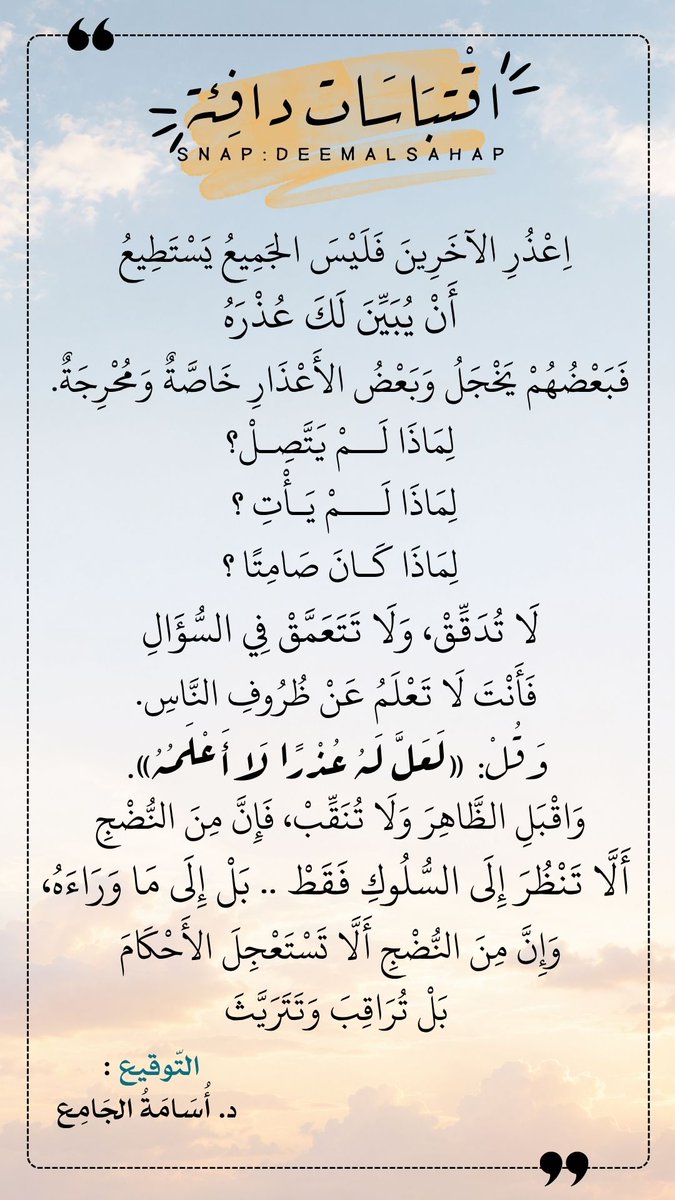 اقْتبَاسَات دافِئة
SNAP:DEEMALSAHAP
اِعْذُرِ الآخَرِينَ فَلَيْسَ الجَمِيعُ يَسْتَطِيعُ
أَنْ يُبَيِّنَ لَكَ عُذْرَهُ
فَبَعْضُهُمْ يَخْجَلُ وَبَعْضُ الأَعْذَارِ خَاصَّةٌ وَمُحْرِجَةٌ.
لِمَاذَا لَـــمْ يَتَّصِـلْ؟
لِمَاذَا لَـــمْ يَـأْتِ ؟
لِمَاذَا كَـانَ صَامِتًا ؟
لَا تُدَقِّقْ، وَلَا تَتَعَمَّقْ فِي السُّؤَالِ
فَأَنْتَ لَا تَعْلَمُ عَنْ ظُرُوفِ النَّاسِ.
وَقُلْ: «لَعَلَّ لَهُ عُذْرًا لَا أَعْلَمُهُ».
وَاقْبَلِ الظَّاهِرَ وَلَا تُنَقِّبْ، فَإِنَّ مِنَ النُّضْجِ
أَلَّا تَنْظُرَ إِلَى السُّلُوكِ فَقَطْ .. بَلْ إِلَى مَا وَرَاءَهُ،
وَإِنَّ مِنَ النُّضْجِ أَلَّا تَسْتَعْجِلَ الأَحْكَامَ
بَلْ تُرَاقِبَ وَتَتَرَيَّثَ
التّوقيع :
د. أُسَامَةُ الجَامِع